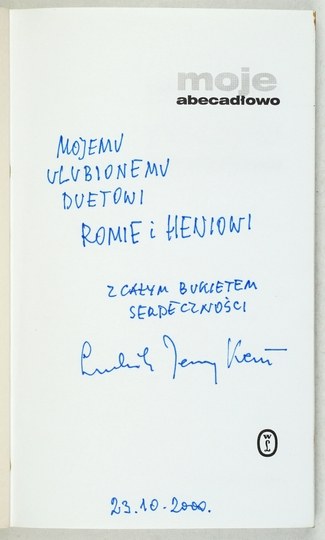 moje
abecadłowo
MOJEMU
ULUBIONEMU
DUETOWI
ROMIE i HENIOWI
Z CAŁYM BUKIETEM
SERDECZNOŚCI
Ludwik Jerzy Kern
W
L
23.10-2000.